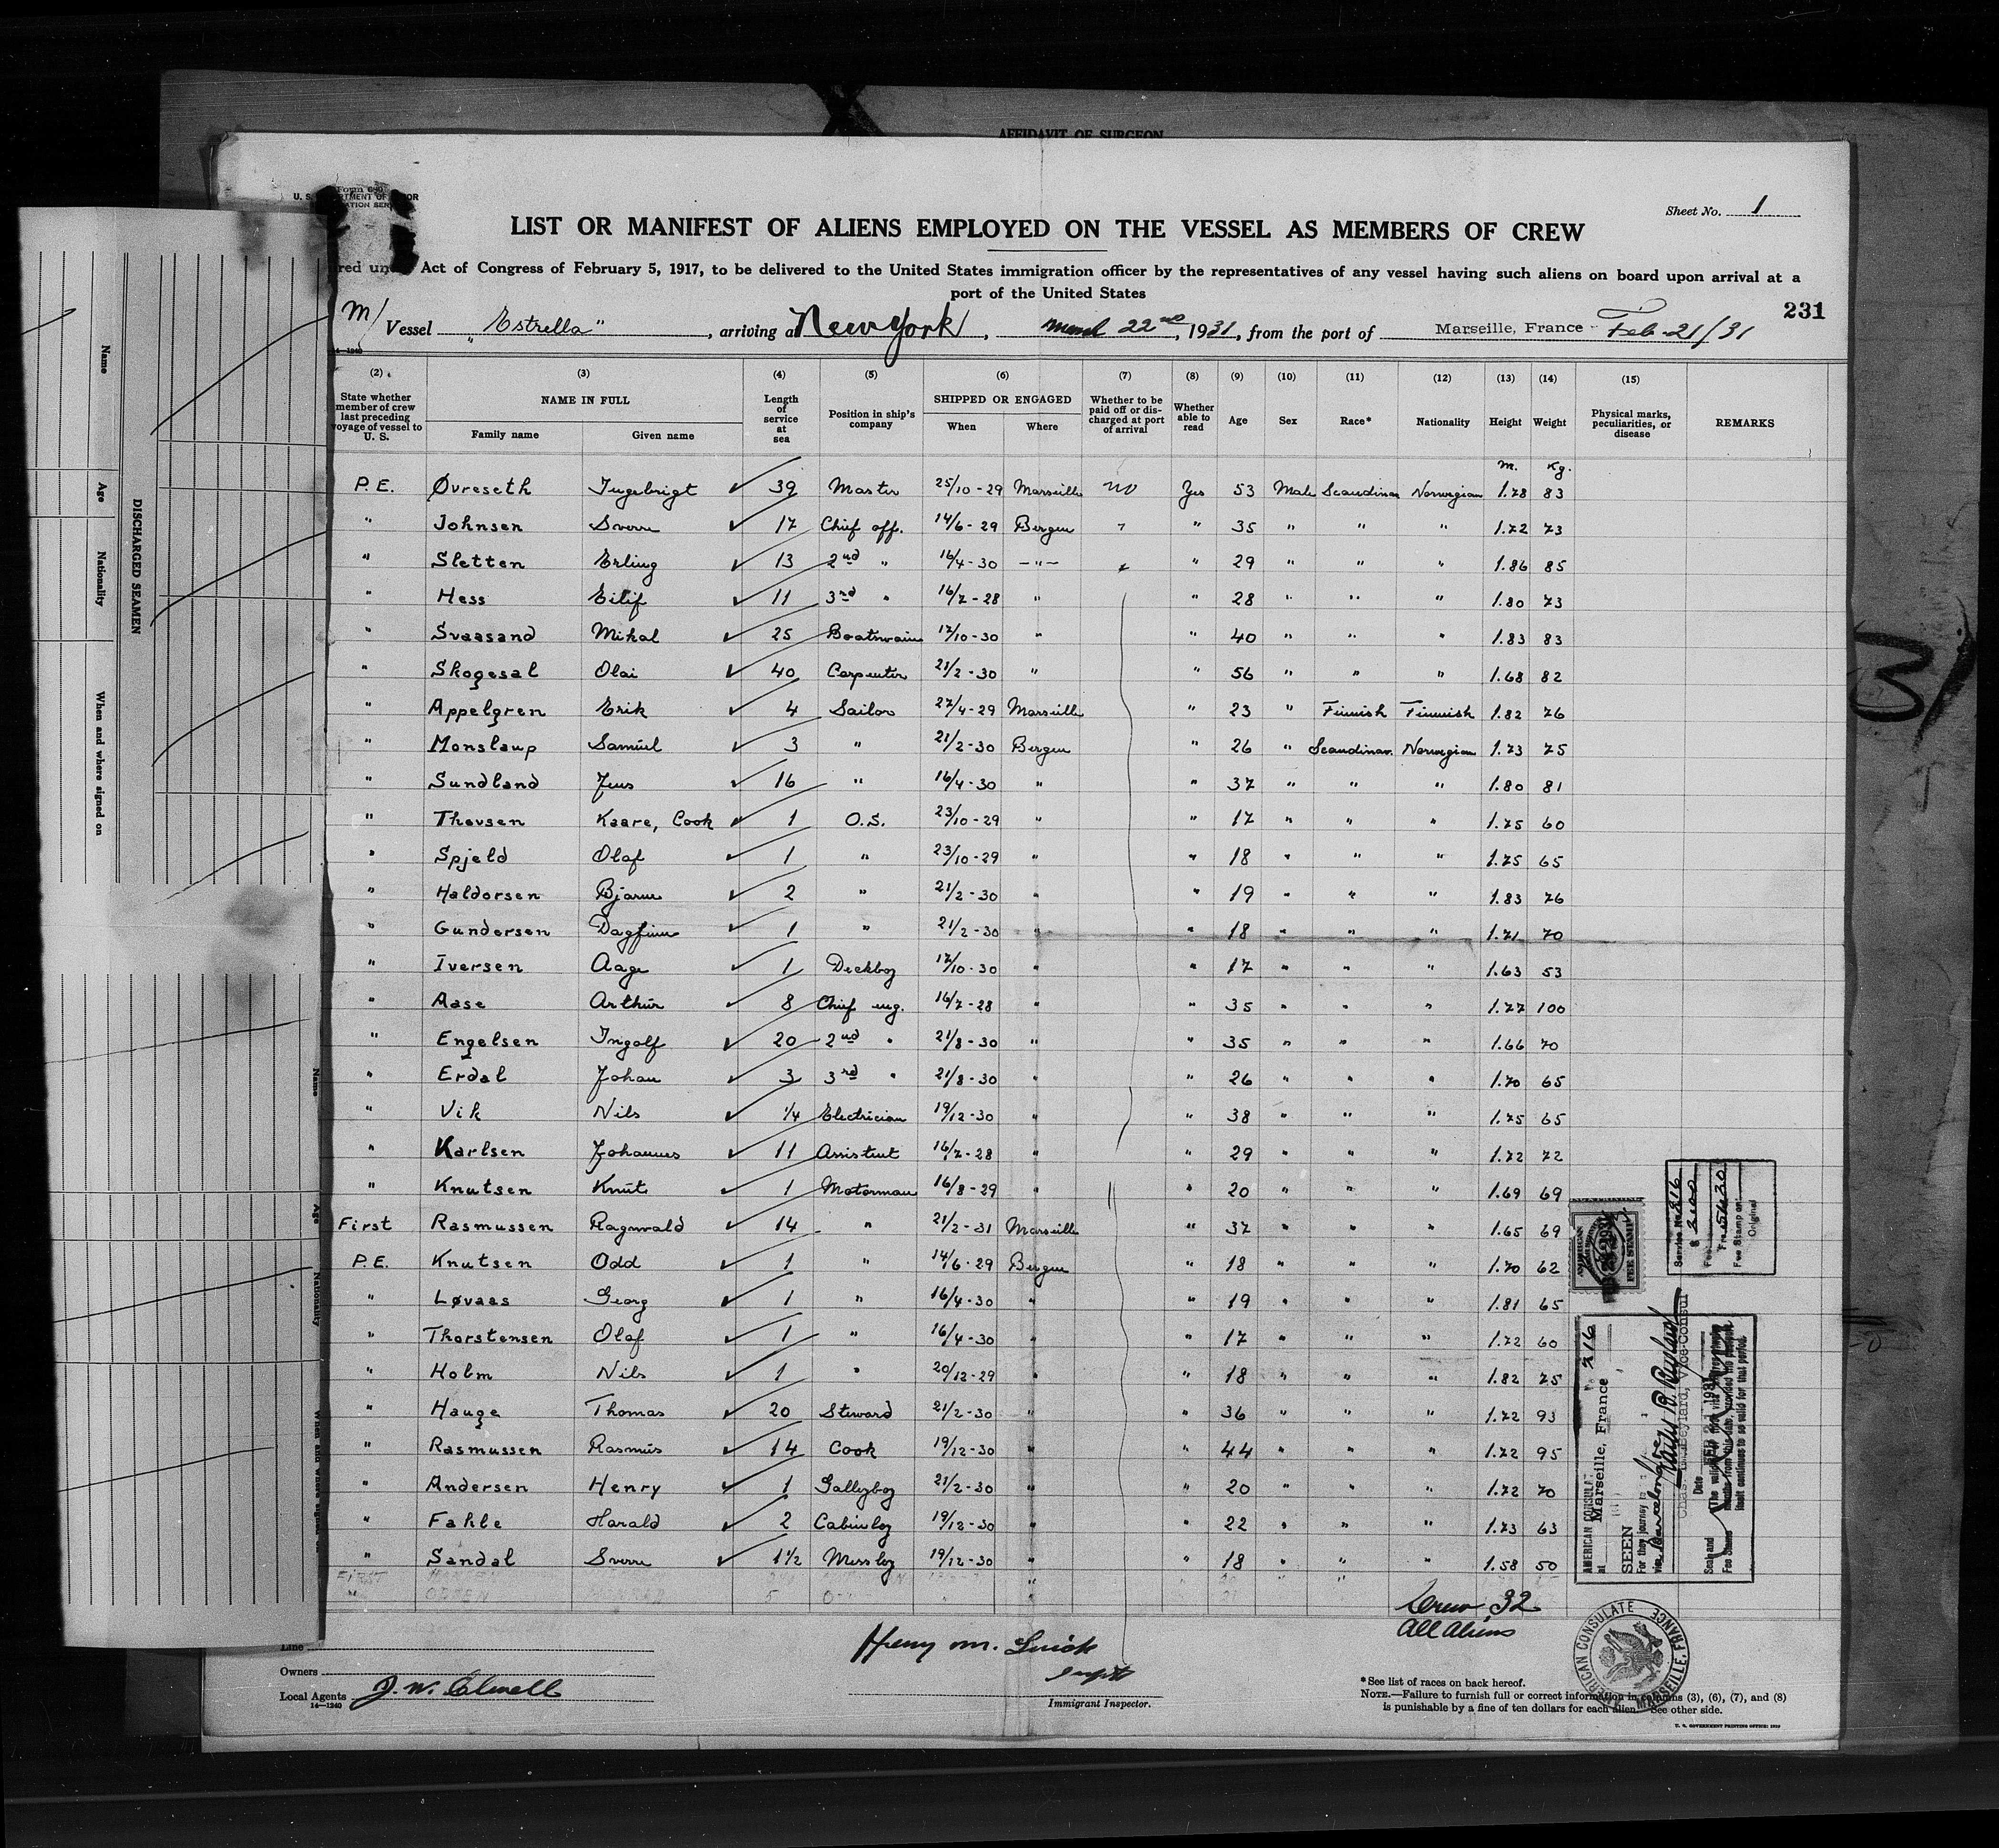 AFFIDAVIT OF SURGEON
Form 680
Sheet No. 1
LIST OR MANIFEST OF ALIENS EMPLOYED ON THE VESSEL AS MEMBERS OF CREW
Act of Congress of February 5, 1917, to be delivered to the United States immigration officer by the representatives of any vessel having such aliens on board upon arrival at a
port of the United States
231
M/ Vessel "Estrella", arriving at New York, 22nd, 1931, from the port of Marseille, France Feb-21/31
(2) (3) (4) (5) (6) (7) (8) (9) (10) (11) (12) (13) (14) (15)
State whether member of crew last preceding voyage of vessel to U. S. NAME IN FULL Family name Given name Length of service at sea Position in ship's company SHIPPED OR ENGAGED When Where Whether to be paid off or discharged at port of arrival Whether able to read Age Sex Race* Nationality Height Weight Physical marks, peculiarities, or disease REMARKS
m. Kg.
P.E. Øvreseth Ingebrigt 39 Master 25/10-29 Marseille no Yes 53 Male Scandinav Norwegian 1.78 83
" Johnsen Sverre 17 Chief off. 14/6-29 Bergen " 35 " " " 1.72 73
" Sletten Erling 13 2nd " 16/4-30 -"- " 29 " " " 1.86 85
" Hess Eilif 11 3rd " 16/7-28 " " 28 " " " 1.80 73
" Svaasand Mikal 25 Boatswain 17/10-30 " " 40 " " " 1.83 83
" Skogesal Olai 40 Carpenter 21/2-30 " " 56 " " " 1.68 82
" Appelgren Erik 4 Sailor 27/4-29 Marseille " 23 " Finnish Finnish 1.82 76
" Monslaup Samuel 3 " 21/2-30 Bergen " 26 " Scandinav. Norwegian 1.73 75
" Sundland Jens 16 " 16/4-30 " " 37 " " " 1.80 81
" Thevsen Kaare, Cook 1 O.S. 23/10-29 " " 17 " " " 1.75 60
" Spjeld Olaf 1 " 23/10-29 " " 18 " " " 1.75 65
" Haldorsen Bjarne 2 " 21/2-30 " " 19 " " " 1.83 76
" Gundersen Dagfinn 1 " 21/2-30 " " 18 " " " 1.71 70
" Iversen Aage 1 Deckboy 17/10-30 " " 17 " " " 1.63 53
" Aase Arthur 8 Chief eng. 16/7-28 " " 35 " " " 1.77 100
" Engelsen Ingolf 20 2nd " 21/8-30 " " 35 " " " 1.66 70
" Erdal Johan 3 3rd " 21/8-30 " " 26 " " " 1.70 65
" Vik Nils 1/4 Electrician 19/12-30 " " 38 " " " 1.75 65
" Karlsen Johannes 11 Assistent 16/7-28 " " 29 " " " 1.72 72
" Knutsen Knut 1 Motorman 16/8-29 " " 20 " " " 1.69 69
First Rasmussen Ragnvald 14 " 21/2-31 Marseille " 37 " " " 1.65 69
P.E. Knutsen Odd 1 " 14/6-29 Bergen " 18 " " " 1.70 62
" Løvaas Georg 1 " 16/4-30 " " 19 " " " 1.81 65
" Thorstensen Olaf 1 " 16/4-30 " " 17 " " " 1.72 60
" Holm Nils 1 " 20/12-29 " " 18 " " " 1.82 75
" Hauge Thomas 20 Steward 21/2-30 " " 36 " " " 1.72 93
" Rasmussen Rasmus 14 Cook 19/12-30 " " 44 " " " 1.72 95
" Andersen Henry 1 Galleyboy 21/2-30 " " 20 " " " 1.72 70
" Fahle Harald 2 Cabinboy 19/12-30 " " 22 " " " 1.73 63
" Sandal Sverre 1 1/2 Messboy 19/12-30 " " 18 " " " 1.58 50
First
Crew 32
All Aliens
Line
Owners
Local Agents
14—1240
Henry M.
Immigrant Inspector.
*See list of races on back hereof.
NOTE.—Failure to furnish full or correct information in columns (3), (6), (7), and (8)
is punishable by a fine of ten dollars for each alien. See other side.
U. S. GOVERNMENT PRINTING OFFICE
DISCHARGED SEAMEN
Name
Age
Nationality
When and where signed on
Name
Age
Nationality
Service No. 216
Fee Stamp on
Original
AMERICAN
FEE STAMP
AMERICAN CONSULATE
at Marseille, France 216
SEEN
For the journey to
Vice-Consul
Date FEB 21 1931
Seal and
Fee Stamp
AMERICAN CONSULATE MARSEILLE, FRANCE